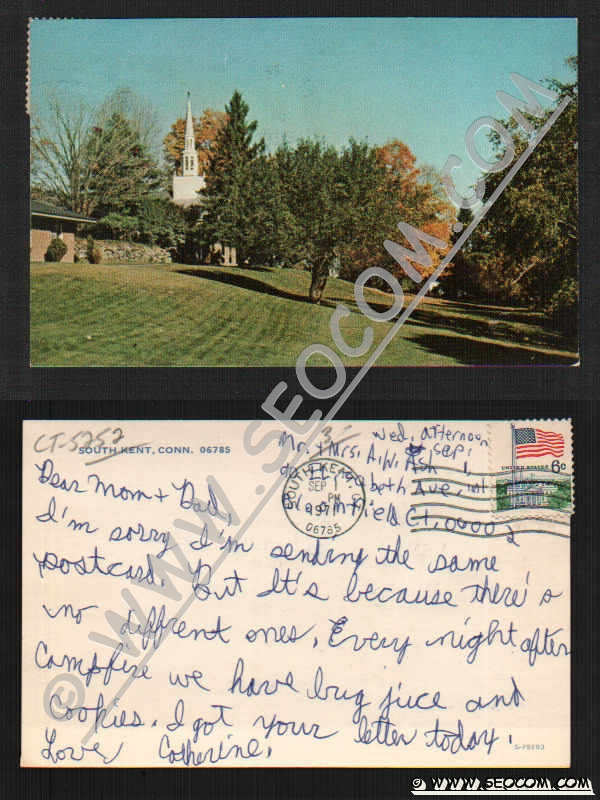 © WWW.SEOCOM.COM
CT-5252
SOUTH KENT, CONN. 06785
Wed. afternoon
Sep. 1
Mr. + Mrs. A.W. Ash
beth Ave,
field CT. 06002
SOUTH KENT, CT
SEP 1
PM
1971
06785
UNITED STATES
6c
Dear Mom + Dad,
I'm sorry I'm sending the same
postcard. But It's because there's
no diffrent ones. Every night after
Campfire we have bug juice and
Cookies. I got your letter today.
Love Catherine.
S-75293
© WWW.SEOCOM.COM